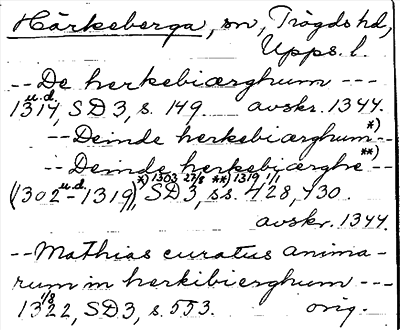 Härkeberga, sn, Trögds hd,
Upps. l.
-- De herkebiærghum ---
1314 u.d., SD 3, s. 149. avskr. 1344.
-- Deinde herkebiærghum *) --
-- Deinde herkebiærghe **) --
(1302 u.d. - 1319), *) 1303 27/8 **) 1319 1/1 SD 3, ss. 428, 430.
avskr. 1344.
-- Mathias curatus anima-
rum in herkibierghum ---
1322 1/8, SD 3, s. 553. orig.